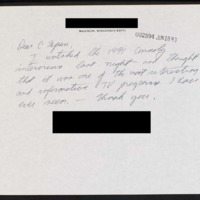 MADISON, WISCONSIN 53711
002594 JUN 10 91
Dear C-Span,
I watched the 1991 Connally
interview last night and thought
that it was one of the most interesting
and informative TV programs I have
ever seen. — Thank you.